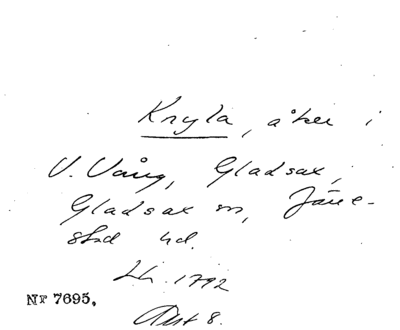 Knyla, åker i
V. Vång, Gladsax,
Gladsax sn, Järre-
stad hd.
LH. 1792
Akt 8.
Nr 7695.